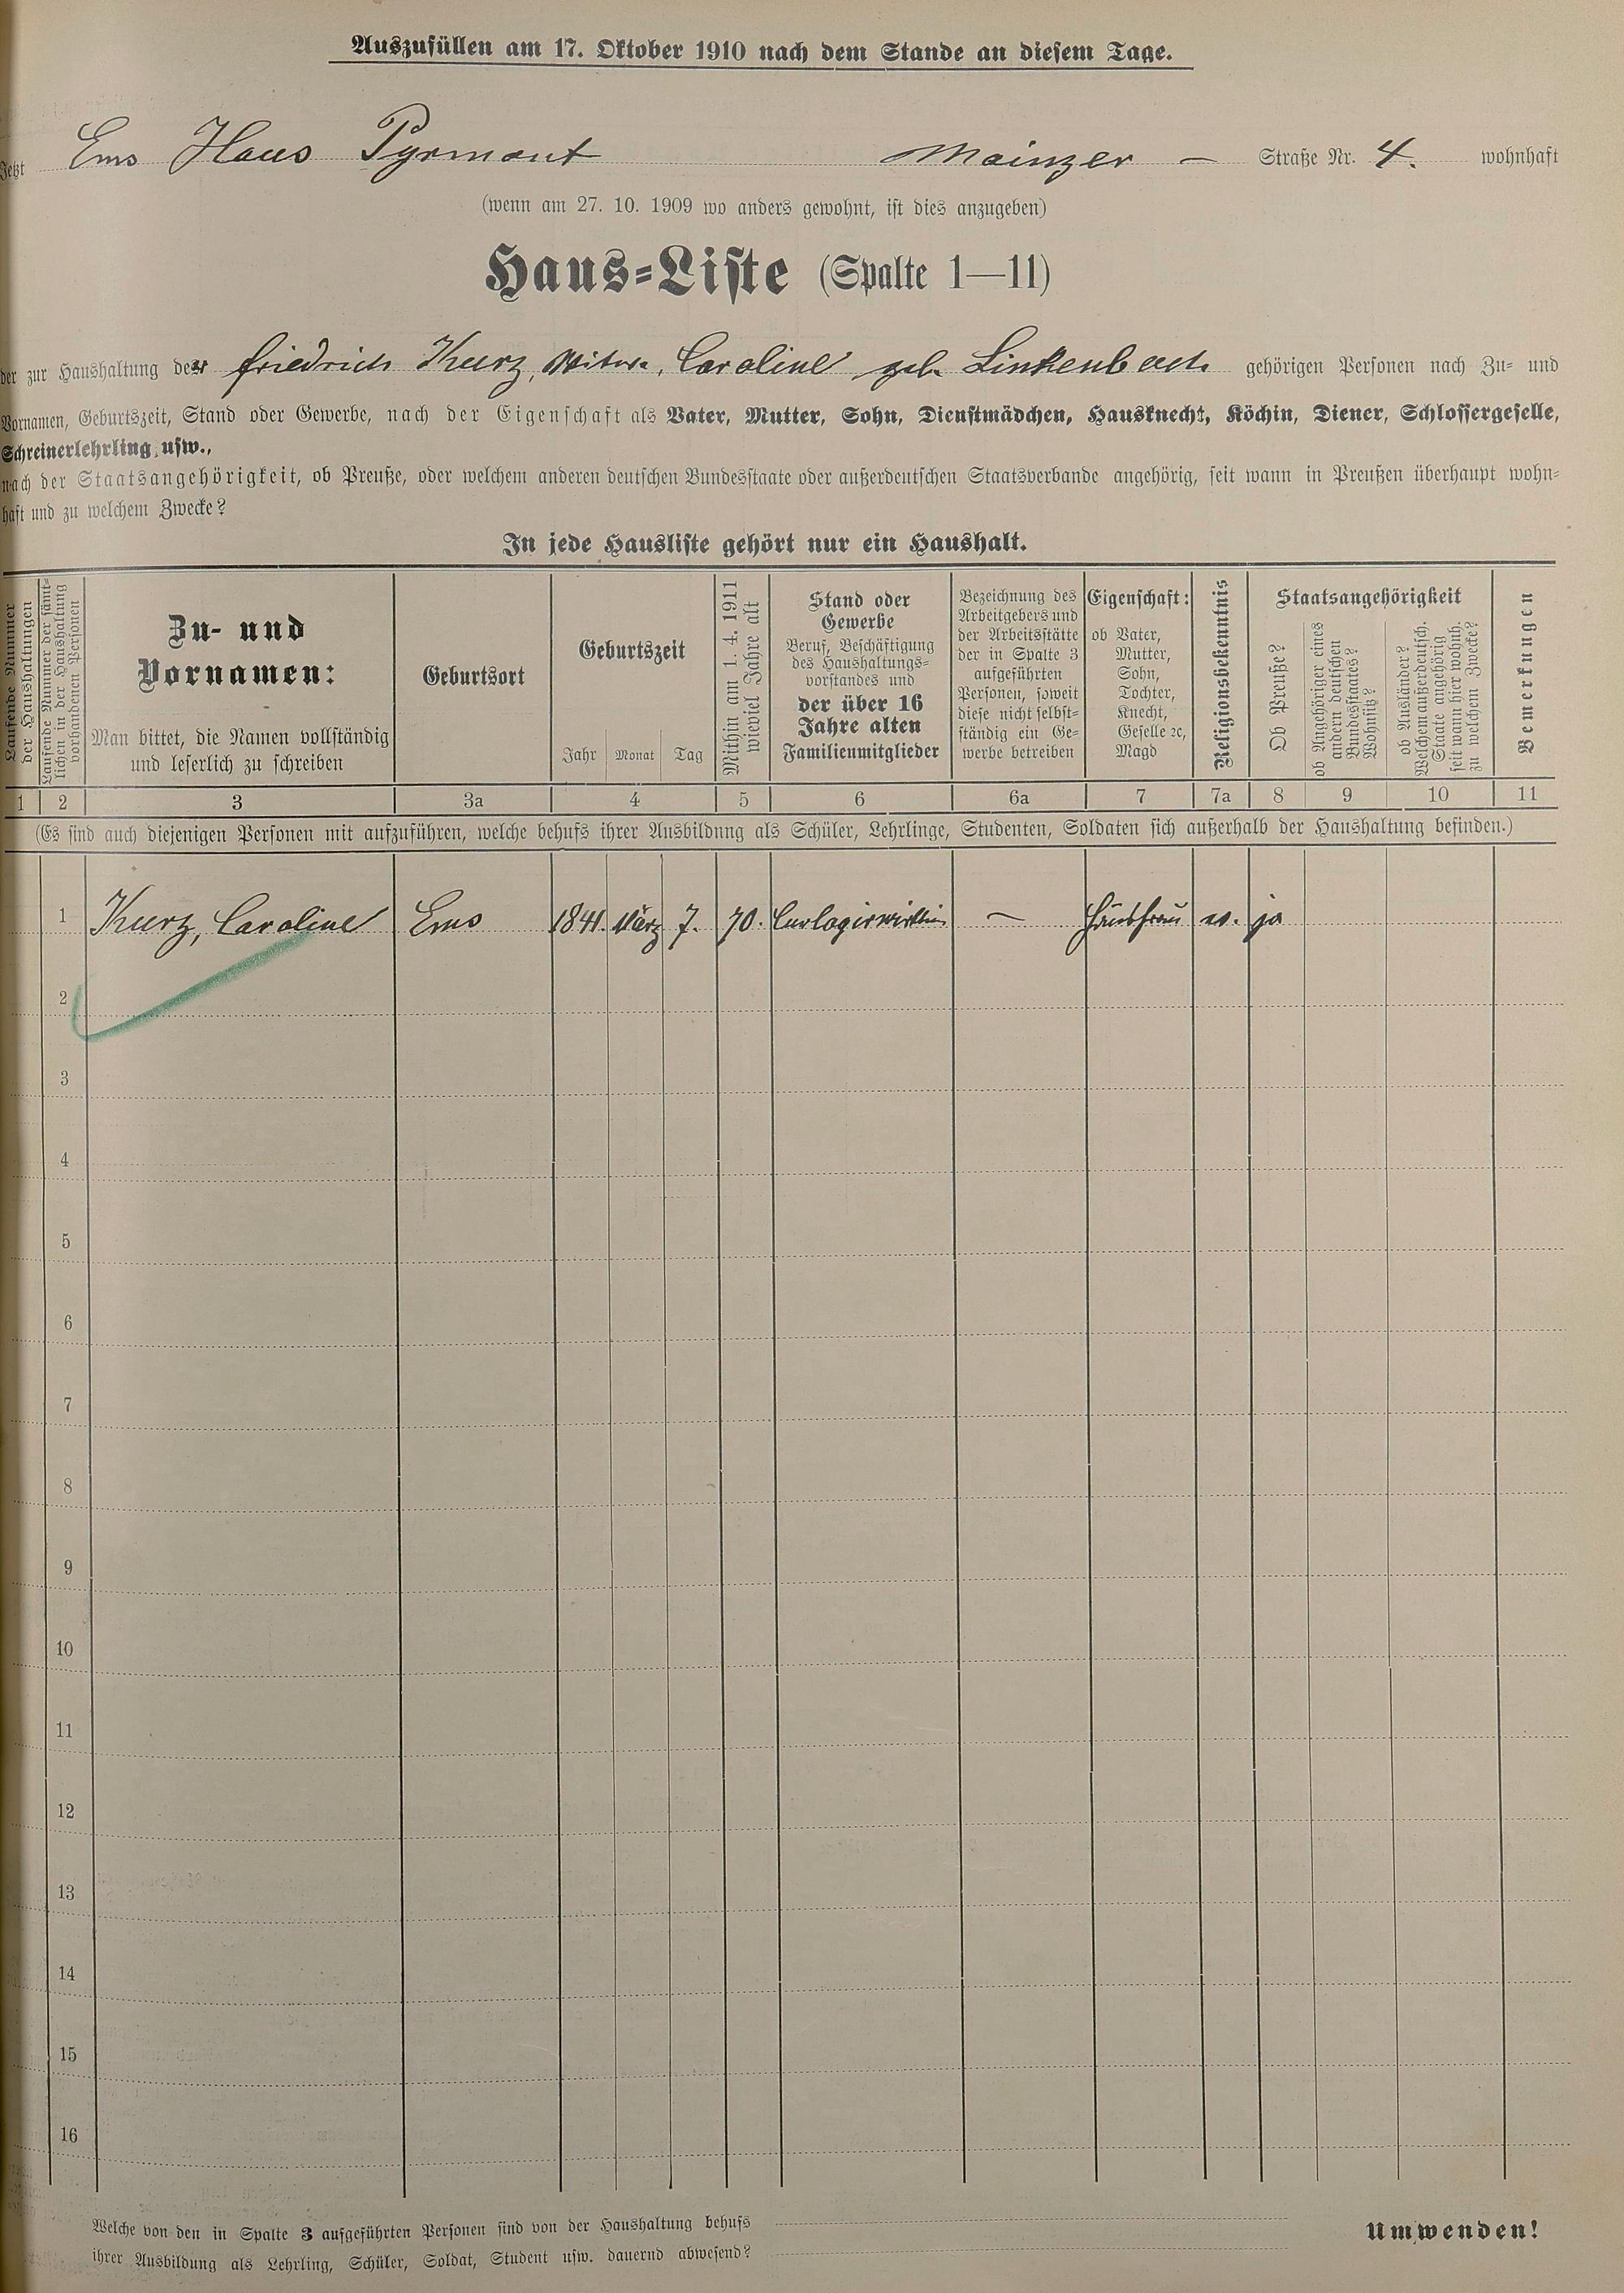 Auszufüllen am 17. Oktober 1910 nach dem Stande an diesem Tage.
Jetzt Ems Haus Pyrmont Mainzer – Straße Nr. 4. wohnhaft
(wenn am 27. 10. 1909 wo anders gewohnt, ist dies anzugeben)
Haus-Liste (Spalte 1—11)
der zur Haushaltung der Friedrich Kurz, Witwe, Caroline geb. Linkenbach gehörigen Personen nach Zu- und
Vornamen, Geburtszeit, Stand oder Gewerbe, nach der Eigenschaft als Vater, Mutter, Sohn, Dienstmädchen, Hausknecht, Köchin, Diener, Schlossergeselle,
Schreinerlehrling, usw.,
nach der Staatsangehörigkeit, ob Preuße, oder welchem anderen deutschen Bundesstaate oder außerdeutschen Staatsverbande angehörig, seit wann in Preußen überhaupt wohn-
haft und zu welchem Zwecke?
In jede Hausliste gehört nur ein Haushalt.
Laufende Nummer
der Haushaltungen
Laufende Nummer der sämt-
lichen in der Haushaltung
vorhandenen Personen
Zu- und
Vornamen:
Man bittet, die Namen vollständig
und leserlich zu schreiben
Geburtsort
Geburtszeit
Jahr Monat Tag
Mithin am 1. 4. 1911
wieviel Jahre alt
Stand oder
Gewerbe
Beruf, Beschäftigung
des Haushaltungs-
vorstandes und
der über 16
Jahre alten
Familienmitglieder
Bezeichnung des
Arbeitgebers und
der Arbeitsstätte
der in Spalte 3
aufgeführten
Personen, soweit
diese nicht selbst-
ständig ein Ge-
werbe betreiben
Eigenschaft:
ob Vater,
Mutter,
Sohn,
Tochter,
Knecht,
Geselle 2c,
Magd
Religionsbekenntnis
Staatsangehörigkeit
Ob Preuße?
ob Angehöriger eines
andern deutschen
Bundesstaates?
Wohnsitz?
ob Ausländer?
Welchem außerdeutsch.
Staate angehörig
seit wann hier wohnh.
zu welchem Zwecke?
Bemerkungen
1 2 3 3a 4 5 6 6a 7 7a 8 9 10 11
(Es sind auch diejenigen Personen mit aufzuführen, welche behufs ihrer Ausbildung als Schüler, Lehrlinge, Studenten, Soldaten sich außerhalb der Haushaltung befinden.)
1 Kurz, Caroline Ems 1841. März 7. 70. Curlogirwirthin — Hausfrau ev. ja
2
3
4
5
6
7
8
9
10
11
12
13
14
15
16
Welche von den in Spalte 3 aufgeführten Personen sind von der Haushaltung behufs
ihrer Ausbildung als Lehrling, Schüler, Soldat, Student usw. dauernd abwesend?
Umwenden!